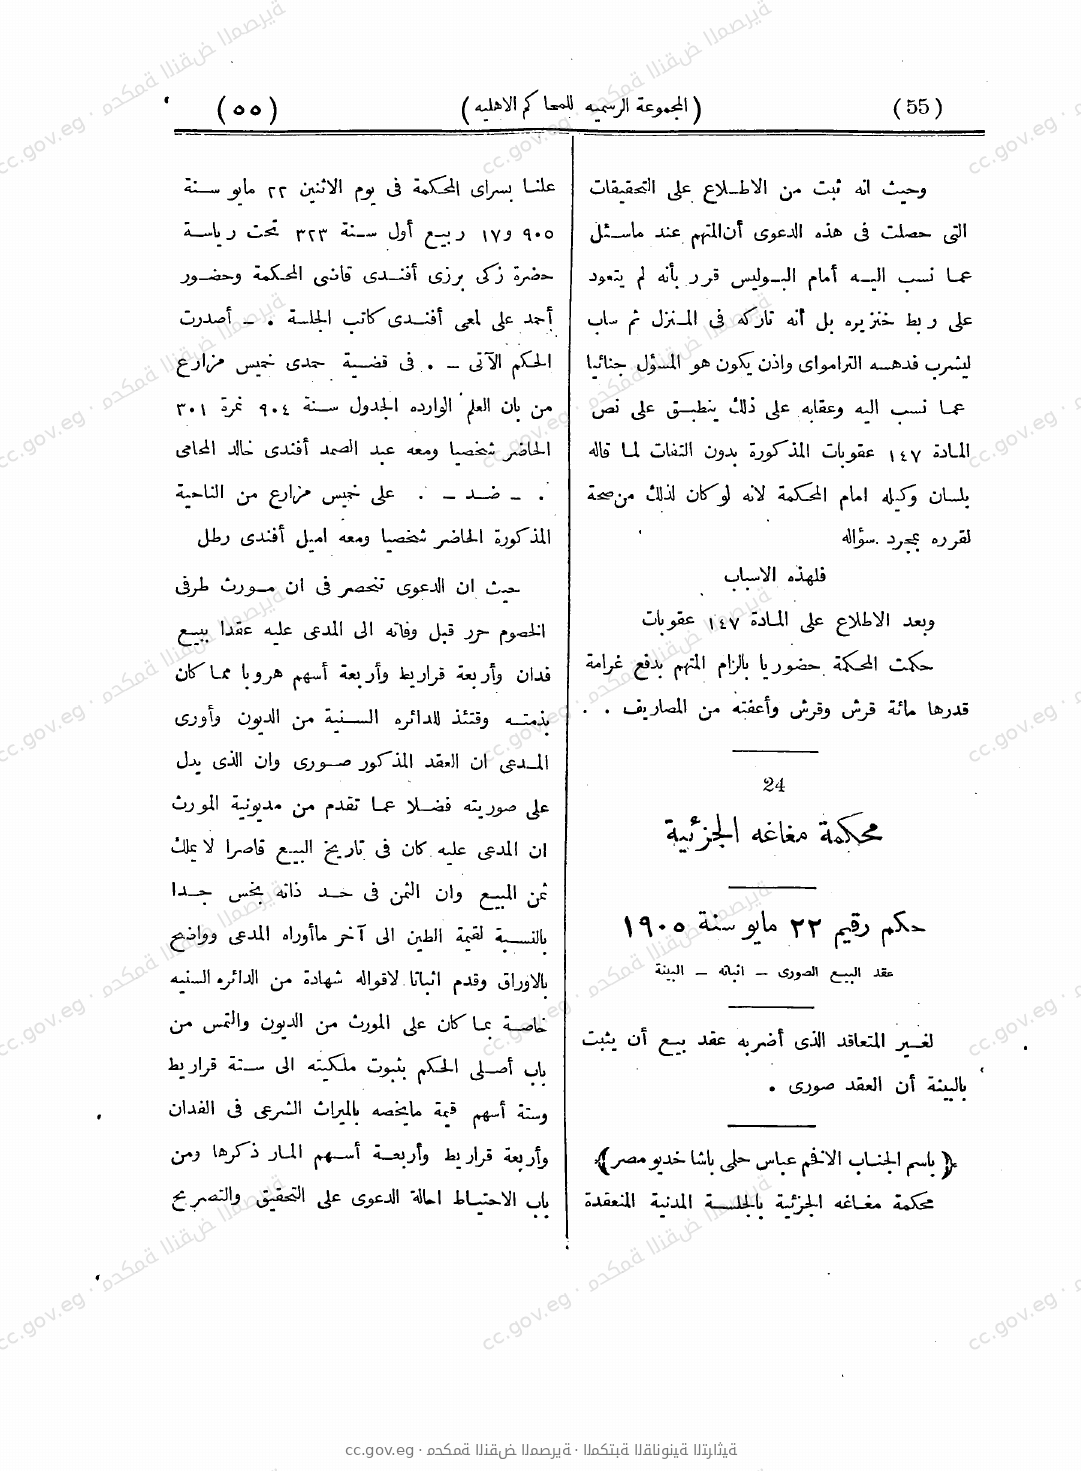 (55) (المجموعة الرسميه للمحاكم الاهليه) (٥٥)
وحيث انه ثبت من الاطلاع على التحقيقات
التى حصلت فى هذه الدعوى أن المتهم عند ماسئل
عما نسب اليه أمام البوليس قرر بأنه لم يتعود
على ربط خنزيره بل أنه تاركه فى المنزل ثم ساب
ليشرب فدهسه التراموای واذن يكون هو المسؤل جنائيا
عما نسب اليه وعقابه على ذلك ينطبق على نص
المادة ١٤٧ عقوبات المذكورة بدون التفات لما قاله
بلسان وكيله امام المحكمة لانه لو كان لذلك من صحة
لقرره بمجرد سؤاله
فلهذه الاسباب
وبعد الاطلاع على المادة ١٤٧ عقوبات
حكمت المحكمة حضوريا بالزام المتهم بدفع غرامة
قدرها مائة قرش وقرش وأعفته من المصاريف . .
24
محكمة مغاغه الجزئية
حكم رقيم ٢٢ مايو سنة ١٩٠٥
عقد البيع الصورى – اثباته – البينة
لغير المتعاقد الذى أضر به عقد بيع أن يثبت
بالبينة أن العقد صورى .
﴿باسم الجناب الافخم عباس حلمى باشا خديو مصر﴾
محكمة مغاغه الجزئية بالجلسة المدنية المنعقدة
علنا بسراى المحكمة فى يوم الاثنين ٢٢ مايو سنة
٩٠٥ و١٧ ربيع أول سنة ٣٢٣ تحت رياسة
حضرة زكى برزى أفندى قاضى المحكمة وحضور
أحمد على لمعى أفندى كاتب الجلسة . – أصدرت
الحكم الآتى – . فى قضية حمدى خميس مزارع
من بان العلم الوارده الجدول سنة ٩٠٤ نمرة ٣٠١
الحاضر شخصيا ومعه عبد الصمد أفندى خالد المحامى
. – ضد – . على خميس مزارع من الناحية
المذكورة الحاضر شخصيا ومعه اميل أفندى رطل
حيث ان الدعوى تنحصر فى ان مورث طرفى
الخصوم حرر قبل وفاته الى المدعى عليه عقدا ببيع
فدان وأربعة قراريط وأربعة أسهم هروبا مما كان
بذمته وقتئذ للدائره السنية من الديون وأورى
المدعى ان العقد المذكور صورى وان الذى يدل
على صوريته فضلا عما تقدم من مديونية المورث
ان المدعى عليه كان فى تاريخ البيع قاصرا لا يملك
ثمن المبيع وان الثمن فى حد ذاته بخس جدا
بالنسبة لقيمة الطين الى آخر ماأوراه المدعى وواضح
بالاوراق وقدم اثباتا لاقواله شهادة من الدائره السنيه
خاصة بما كان على المورث من الديون والتمس من
باب أصلى الحكم بثبوت ملكيته الى ستة قراريط
وستة أسهم قيمة مايخصه بالميراث الشرعى فى الفدان
وأربعة قراريط وأربعة أسهم المار ذكرها ومن
باب الاحتياط احالة الدعوى على التحقيق والتصريح
cc.gov.eg · محكمة النقض المصرية · المكتبة القانونية التراثية